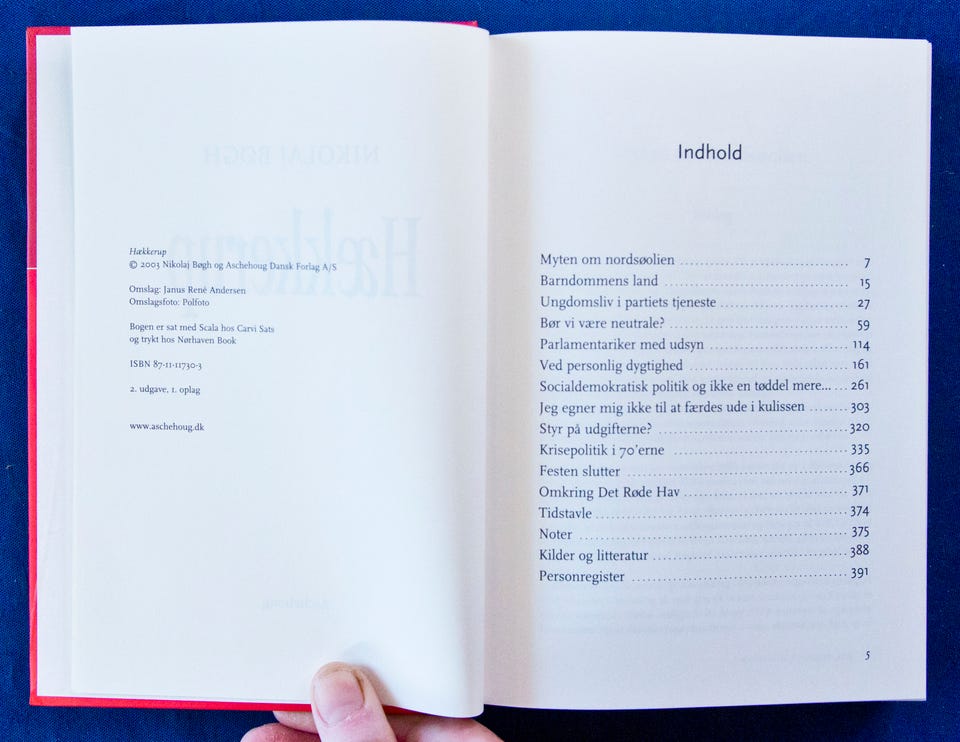 Hækkerup
© 2003 Nikolaj Bøgh og Aschehoug Dansk Forlag A/S
Omslag: Janus René Andersen
Omslagsfoto: Polfoto
Bogen er sat med Scala hos Carvi Sats
og trykt hos Nørhaven Book
ISBN 87-11-11730-3
2. udgave, 1. oplag
www.aschehoug.dk
NIKOLAJ BØGH
Hækkerup
Aschehoug
Indhold
Myten om nordsøolien 7
Barndommens land 15
Ungdomsliv i partiets tjeneste 27
Bør vi være neutrale? 59
Parlamentariker med udsyn 114
Ved personlig dygtighed 161
Socialdemokratisk politik og ikke en tøddel mere... 261
Jeg egner mig ikke til at færdes ude i kulissen 303
Styr på udgifterne? 320
Krisepolitik i 70'erne 335
Festen slutter 366
Omkring Det Røde Hav 371
Tidstavle 374
Noter 375
Kilder og litteratur 388
Personregister 391
5